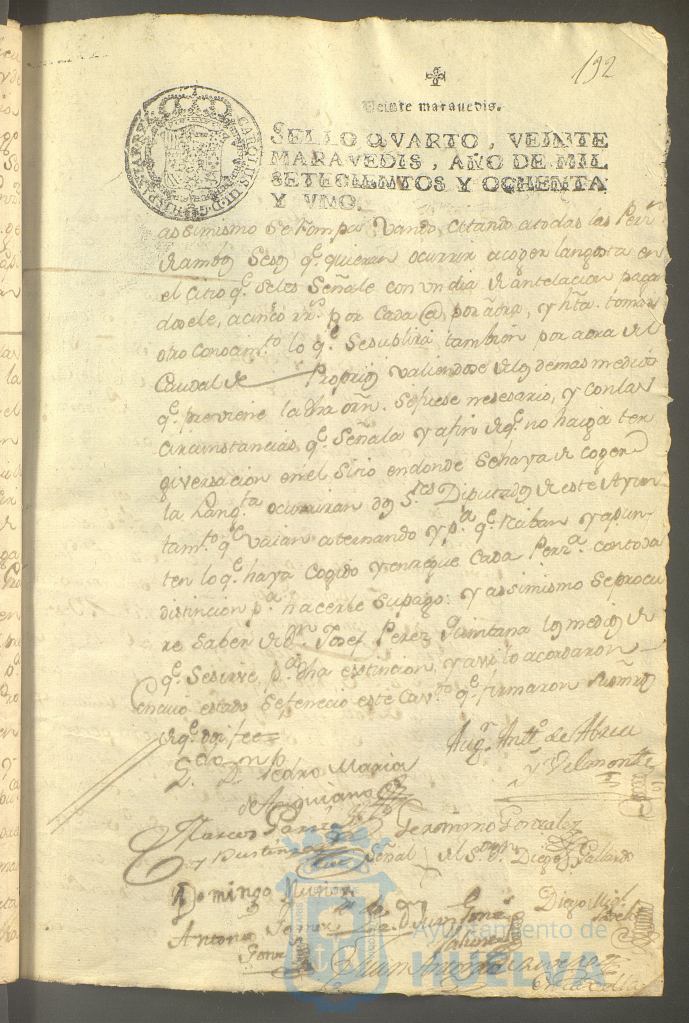 192
Veinte maravedis.
SELLO QVARTO, VEINTE
MARAVEDIS, AÑO DE MIL
SETECIENTOS Y OCHENTA
Y VNO.
CAROLUS III D G HISPANIAR REX
assimismo se rompa Vando, Citando a todas las Perr.s
de ambos Sexos q.e quieran ocurrir a coger langosta en
el Citio q.e se les Señale con un dia de antelacion paga
dosele, a cinco rr.s por Cada @, por aora, y hta. tomar
otro Conocim.to lo q.e se suplirá tambien por aora del
Caudal de Propios valiendose de los demas medios
q.e previene la dha orñ. Sefuese nesesario, y con las
circunstancias q.e Señala y afin de q.e no haiga ter
giversacion en el Sitio en donde Sehaya de coger
la Lang.ta ocurriran dos S.res Diputados de este Ayun
tam.to q.e vaian alternando y p.a q.e reciban y apun-
ten lo q.e haya Cogido y entregue Cada Perr.a con toda
distincion p.a hacerle Supago: y assimismo Seprocu
re Saber de D.n Josef Perez Quintana los medios de
q.e Sesirve p.a dha extincion, y assi lo acordaron
En cuio estado Sefenecio este Cav.do q.e firmaron Susmrds
de q.e doi fee=
Aug.n Ant.o de Abreu
y Velmonte
D. Pedro Maria
de Anguiano
Marcos
Geronimo Gonzalez
y Bustinza
Señal + del S.or D.n Diego Gallardo
Domingo Nuñez
Diego Mig.l
Antonio
Juan
Ayuntamiento de
HUELVA